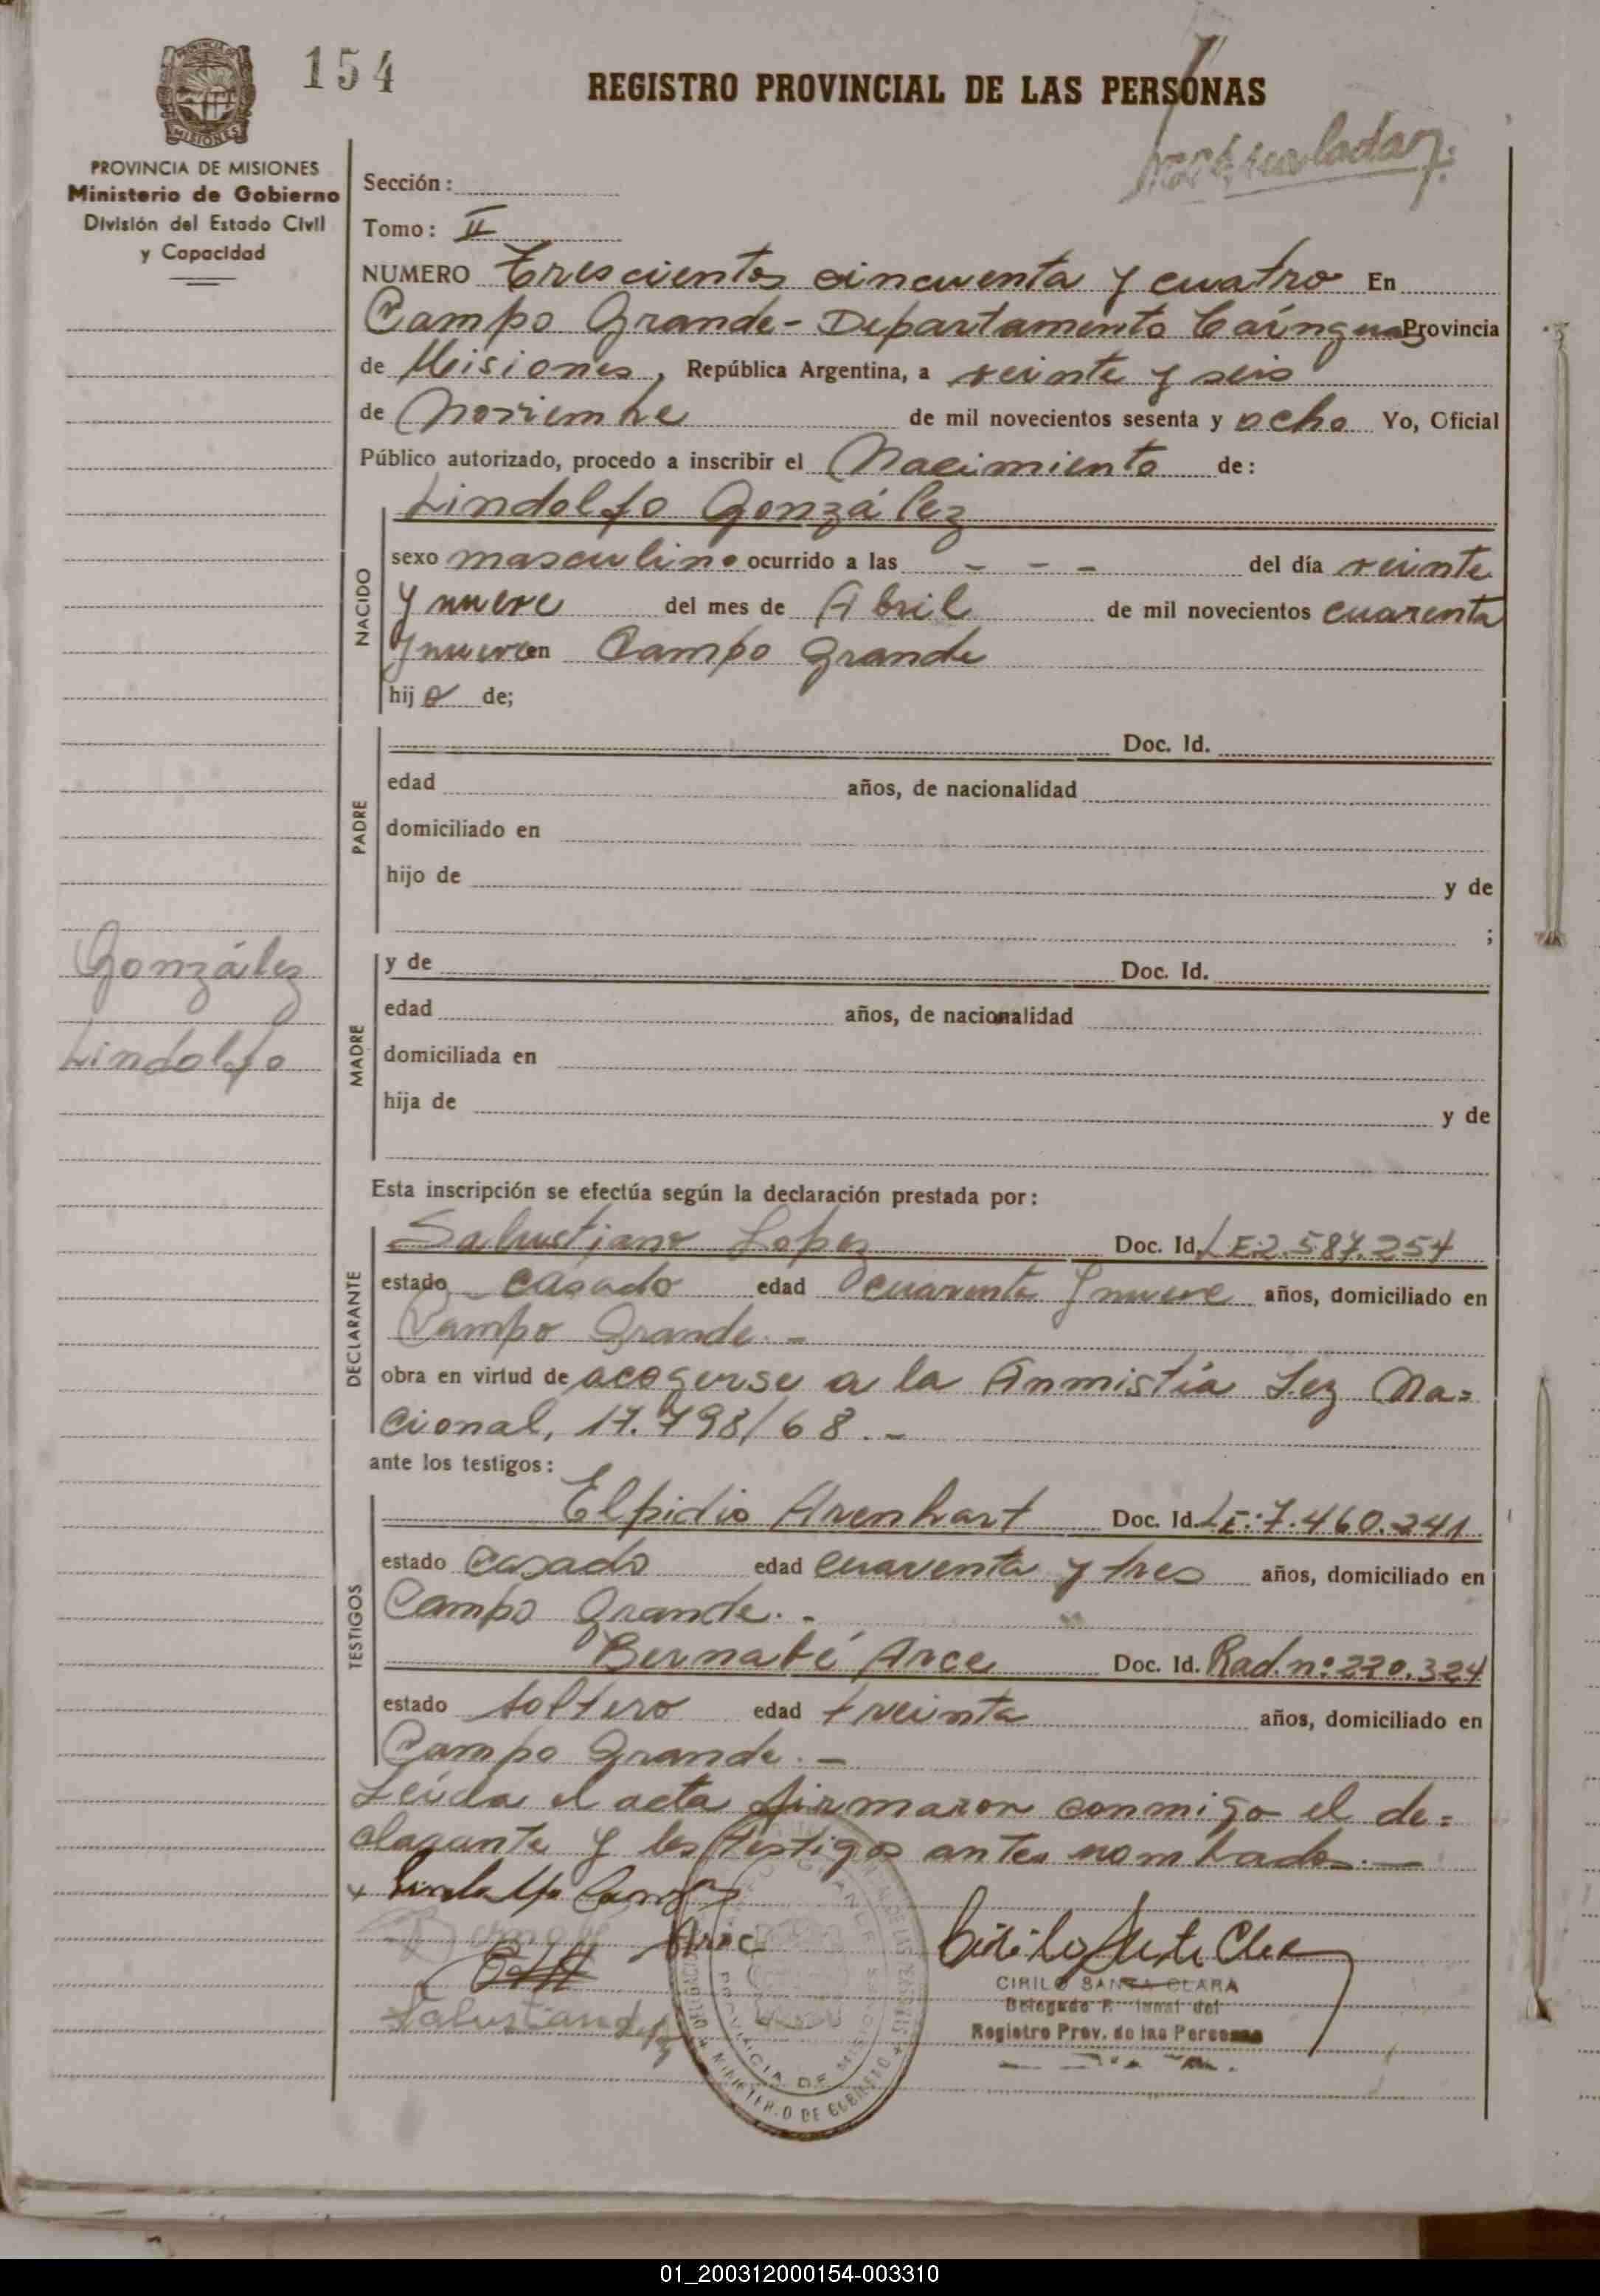 154
REGISTRO PROVINCIAL DE LAS PERSONAS
MISIONES
PROVINCIA DE MISIONES
Ministerio de Gobierno
División del Estado Civil
y Capacidad
Sección:
Tomo: II
NUMERO Trescientos cincuenta y cuatro En
Campo Grande - Departamento Caínguas Provincia
de Misiones, República Argentina, a veinte y seis
de Noviembre de mil novecientos sesenta y ocho Yo, Oficial
Público autorizado, procedo a inscribir el Nacimiento de:
Lindolfo González
NACIDO
sexo masculino ocurrido a las - - - del día veinte
y nueve del mes de Abril de mil novecientos cuarenta
y nueve en Campo Grande
hijo de;
PADRE
Doc. Id.
edad años, de nacionalidad
domiciliado en
hijo de y de
;
González
Lindolfo
MADRE
y de Doc. Id.
edad años, de nacionalidad
domiciliada en
hija de y de
Esta inscripción se efectúa según la declaración prestada por:
DECLARANTE
Salustiano Lopez Doc. Id. LE 2.587.254
estado casado edad cuarenta y nueve años, domiciliado en
Campo Grande. -
obra en virtud de acogerse a la Anmistía Ley Na=
cional, 17.798/68. -
ante los testigos:
TESTIGOS
Elpidio Arenhart Doc. Id. LE: 7.460.241
estado Casado edad cuarenta y tres años, domiciliado en
Campo Grande. -
Bernabé Arce Doc. Id. Rad. nº 220.324
estado soltero edad treinta años, domiciliado en
Campo Grande. -
Leída el acta firmaron conmigo el de=
clarante y los testigos antes nombrados. -
Arce
CIRILO SANTA CLARA
Delegado
Registro Prov. de las Personas
PROVINCIA DE MISIONES
MINISTERIO DE GOBIERNO
01_200312000154-003310